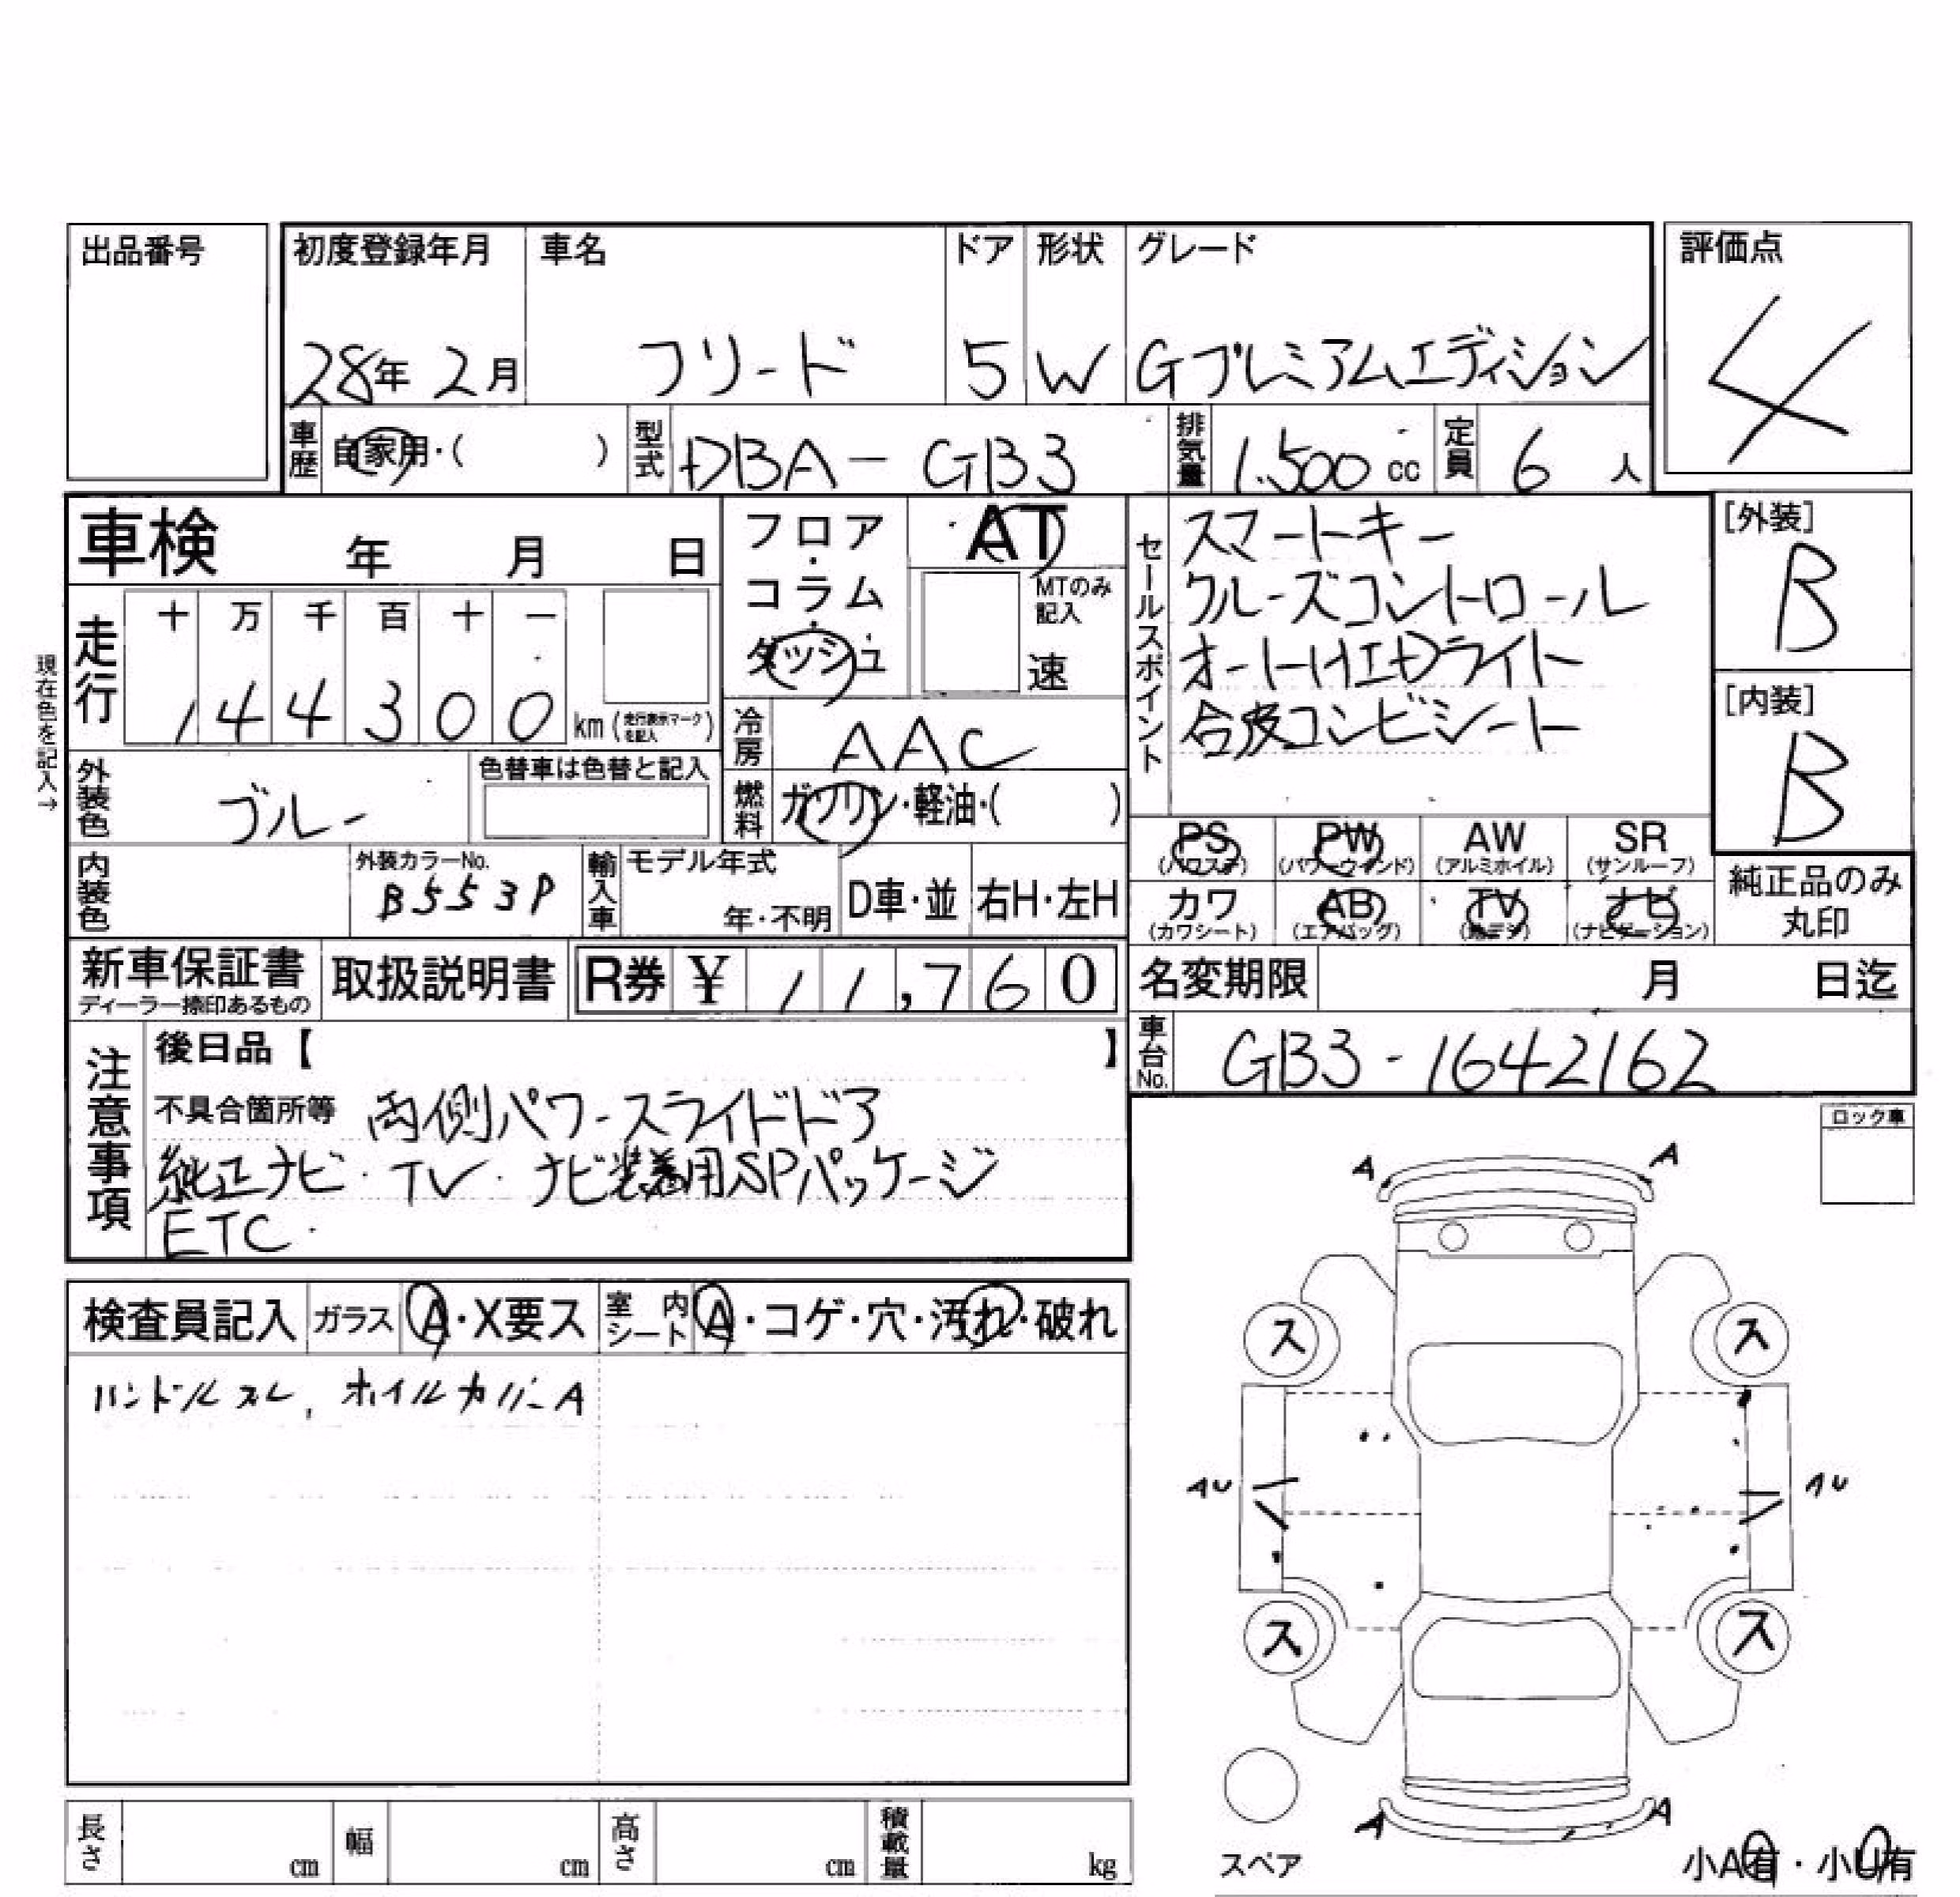 出品番号
初度登録年月 車名 ドア 形状 グレード 評価点
28年 2月 フリード 5 W Gプレミアムエディション 4
車歴 自家用・( ) 型式 DBA-GB3 排気量 1.500 cc 定員 6 人
車検 年 月 日
フロア・コラム・ダッシュ AT
MTのみ記入 速
セールスポイント
スマートキー
クルーズコントロール
オートHIDライト
合皮コンビシート
[外装] B
[内装] B
現在色を記入→
走行 十 万 千 百 十 一
1 4 4 3 0 0 km (走行表示マークを記入)
冷房 AAC
外装色 ブルー 色替車は色替と記入
燃料 ガソリン・軽油・( )
PS (パワステ) PW (パワーウインド) AW (アルミホイル) SR (サンルーフ)
カワ (カワシート) AB (エアバッグ) TV (地デジ) ナビ (ナビゲーション)
純正品のみ丸印
内装色 外装カラーNo. B553P 輸入車 モデル年式 年・不明 D車・並 右H・左H
新車保証書 ディーラー捺印あるもの 取扱説明書 R券 ¥ 11,760
名変期限 月 日迄
車台No. GB3-1642162
注意事項
後日品【 】
不具合箇所等 両側パワースライドドア
純正ナビ・TV・ナビ装着用SPパッケージ
ETC・
ロック車
検査員記入 ガラス A・X要ス 室内シート A・コゲ・穴・汚れ・破れ
ハンドルスレ, ホイルカバーA
A A
ス ス
AU AU
ス ス
A A
スペア
小A有・小U有
長さ cm 幅 cm 高さ cm 積載量 kg